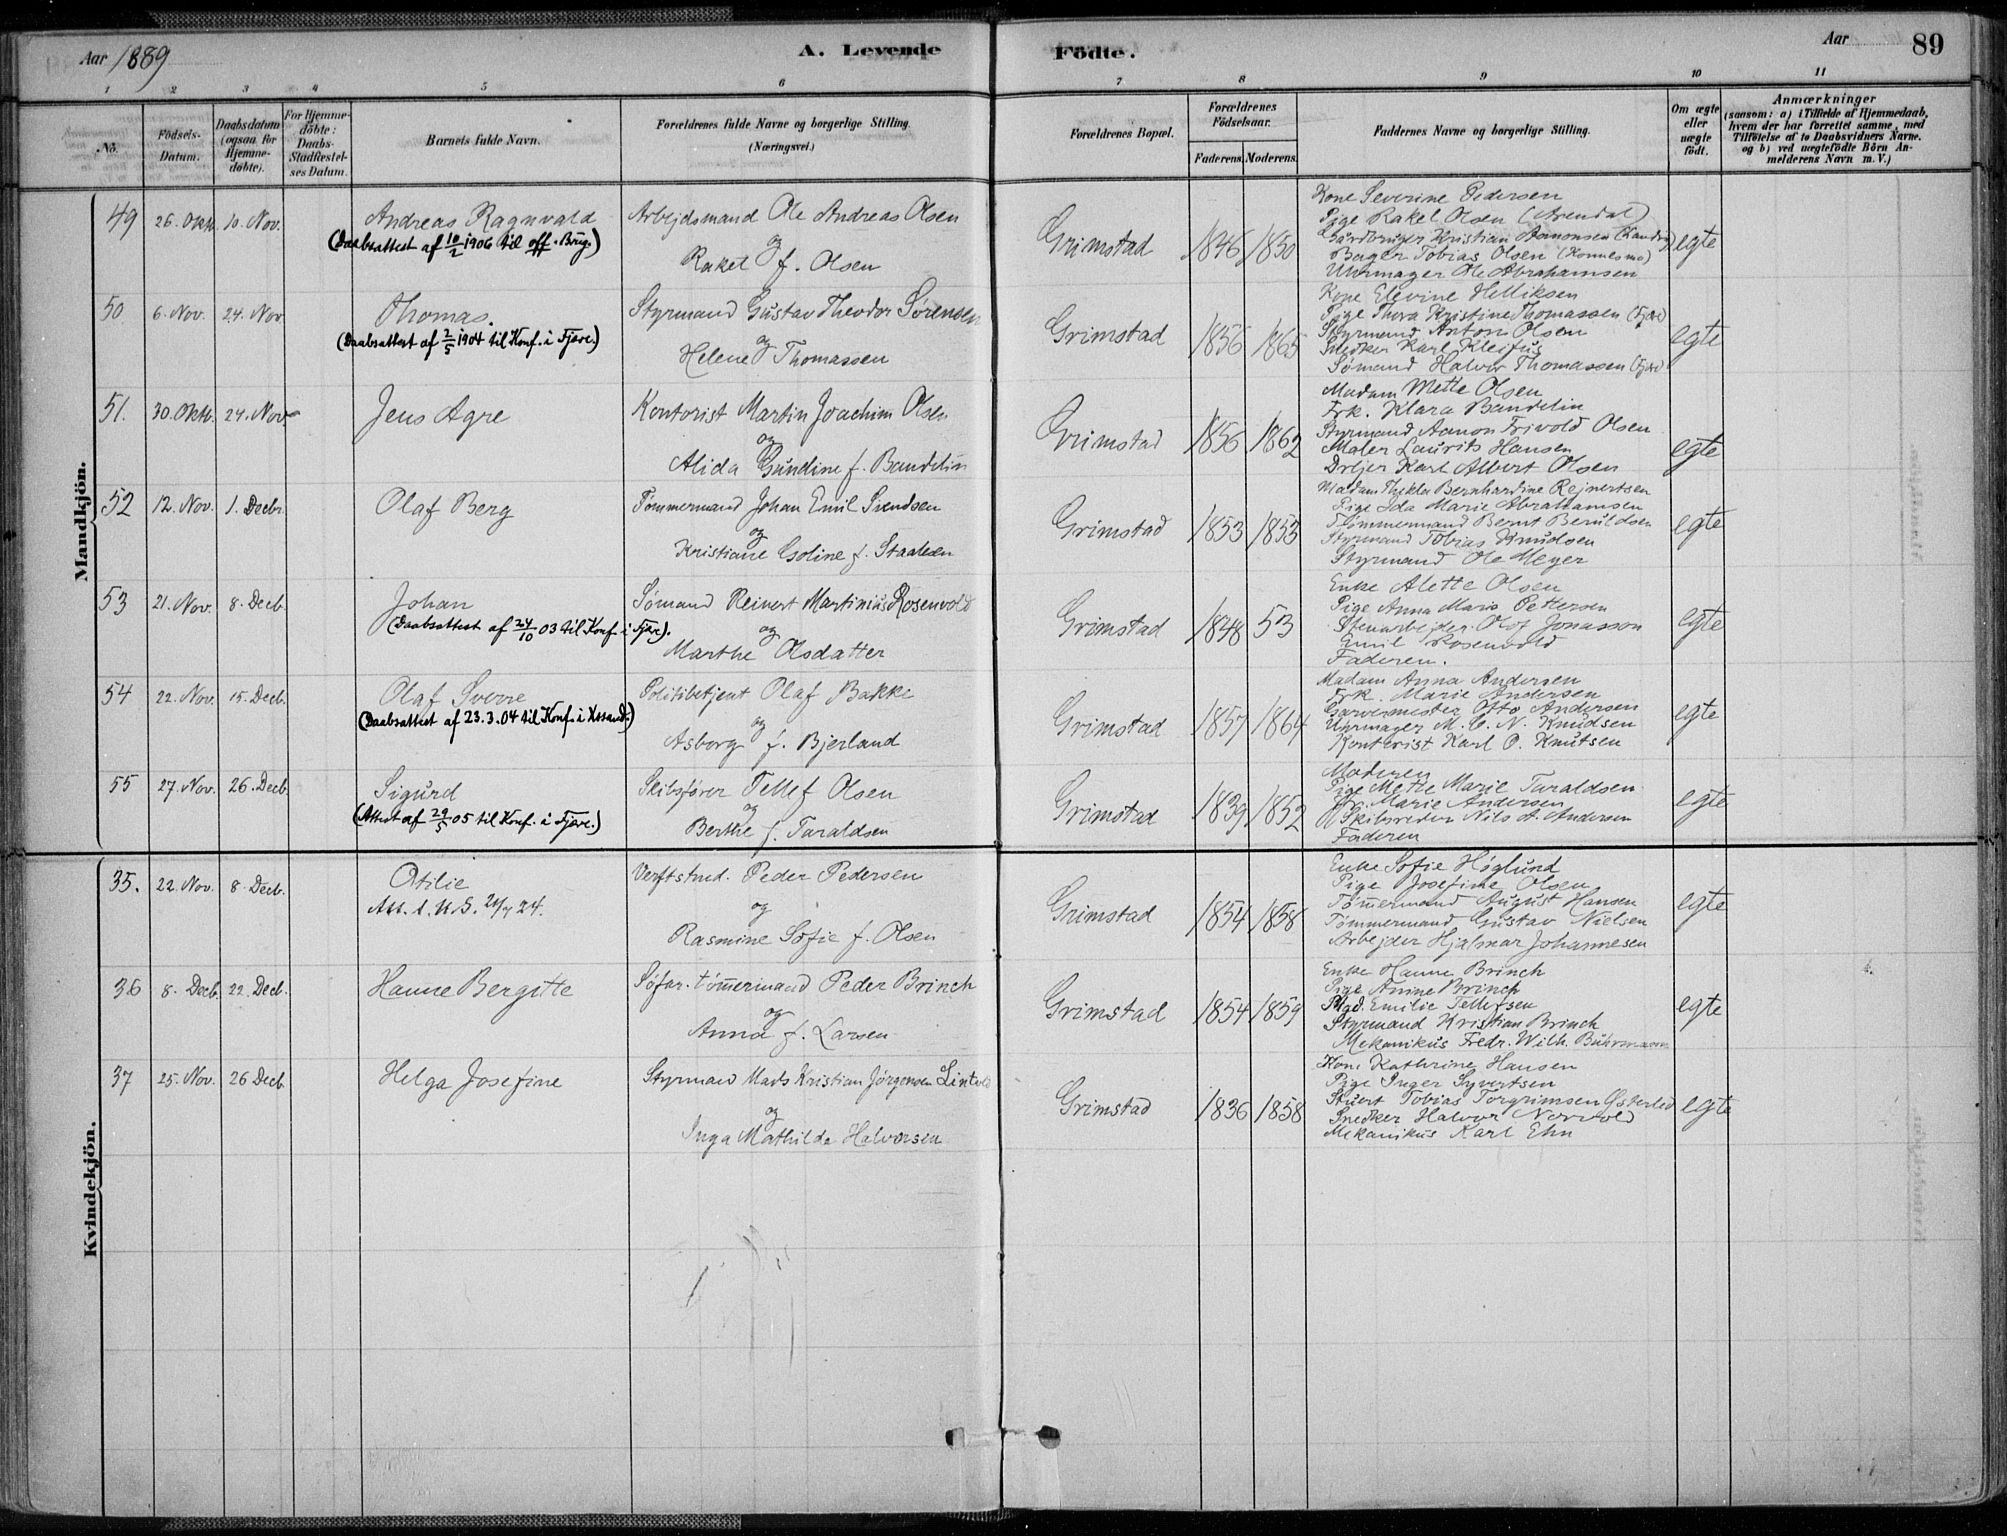 Aar 1889
A. Levende Födte.
Aar 89
1 2 3 4 5 6 7 8 9 10 11
No.
Födsels-Datum.
Daabsdatum (ogsaa for Hjemme-döbte).
For Hjemme-döbte: Daabs-Stadfæstel-ses Datum.
Barnets fulde Navn.
Forældrenes fulde Navne og borgerlige Stilling. (Næringsvei.)
Forældrenes Bopæl.
Forældrenes Födselsaar.
Faderens. Moderens.
Faddernes Navne og borgerlige Stilling.
Om ægte eller uægte födt.
Anmærkninger
(saasom: a) i Tilfælde af Hjemmedaab, hvem der har forrettet samme, med Tilföielse af to Daabsvidners Navne. og b) ved uægtefödte Börn An-melderens Navn m. V.)
Mandkjön.
49 26. Oktb. 10. Nov. Andreas Ragnvald
(Daabsattest af 10/2 1906 til off. Brug.)
Arbejdsmand Ole Andreas Olsen
og
Rakel f. Olsen
Grimstad 1846 1850
Kone Severine Pedersen
Pige Rakel Olsen (Arendal)
Gårdbruger Kristian Aanonsen
Bager Tobias Olsen
Uhrmager Ole Abrahamsen
egte
50 6. Nov. 24. Nov. Thomas.
(Daabsattest af 2/5 1904 til Konf. i Fjære.)
Styrmand Gustav Theodor Sørensen
og
Helene Thomassen
Grimstad 1856 1865
Kone Elevine Helliksen
Pige Thora Kristine Thomassen (Fjære)
Styrmand Anton Olsen
Snedker Karl Kleifus
Sømand Halvor Thomassen (Fjære)
egte
51. 30. Oktb. 24. Nov. Jens Agre
Kontorist Martin Joachim Olsen
og
Alida Gundine f. Bandelin
Grimstad 1856 1862
Madam Mette Olsen
Frk. Klara Bandelin
Styrmand Aanon Frivold Olsen
Maler Laurits Hansen
Drejer Karl Albert Olsen
egte
52 12. Nov. 1. Decbr. Olaf Berg
Tömmermand Johan Emil Svendsen
og
Kristiane Gsoline f. Staalesen
Grimstad 1853 1853
Madam Thekla Bernhardine Rejnertsen
Pige Ida Marie Abrahamsen
Tømmermand Bernt Beruldsen
Styrmand Tobias Knudsen
Styrmand Ole Meyer
egte
53 21. Nov. 8. Decb. Johan
(Daabsattest af 24/10 03 til Konf. i Fjære).
Sømand Reinert Martinius Rosenvold
og
Marthe Olsdatter
Grimstad 1848 53
Enke Alette Olsen
Pige Anna Maria Pettersen
Stenarbejder Olof Jonasson
Emil Rosenvold
Faderen.
egte
54 22. Nov. 15. Decb. Olaf Sverre
(Daabsattest af 23.3.04 til Konf. i Krsand.)
Politibetjent Olaf Bakke
og
Asborg f. Bjerland
Grimstad 1857 1864
Madam Anna Andersen
Frk. Marie Andersen
Garvermester Otto Andersen
Uhrmager M. C. N. Knudsen
Kontorist Karl O. Knutsen
egte
55 27. Nov. 26. Decb. Sigurd
(Attest af 29/5 05 til Konf. i Fjære.)
Skibsfører Tellef Olsen
og
Berthe f. Taraldsen
Grimstad 1839 1852
Moderen
Pige Mette Marie Taraldsen
Frk. Marie Andersen
Skibsreder Nils A. Andersen
Faderen
egte
Kvindekjön.
35. 22. Nov. 8. Decb. Otilie
Att.
Verftstmd. Peder Pedersen
og
Rasmine Sofie f. Olsen
Grimstad 1854 1858
Enke Sofie Høglund
Pige Josefine Olsen
Tömmermand August Hansen
Tömmermand Gustav Nielsen
Arbejder Hjalmar Johannesen
egte
36 8. Decb. 22. Decb. Hanne Bergitte
Søfar. tömmermand Peder Brinch
og
Anna f. Larsen
Grimstad 1854 1859
Enke Hanne Brinch
Pige Anine Brinch
Mad. Emilie Tellefsen
Styrmand Kristian Brinch
Mekanikus Fredr. Wilh. Bührmann
egte
37 25. Nov. 26 Decb. Helga Josefine
Styrmand Mads Kristian Jørgensen
og
Inga Mathilde Halvorsen
Grimstad 1836 1858
Kone Kathrine Hansen
Pige Inger Syvertsen
Stuert Tobias Torgrimsen
Snedker Halvor Norvold
Mekanikus Karl Ehn
egte